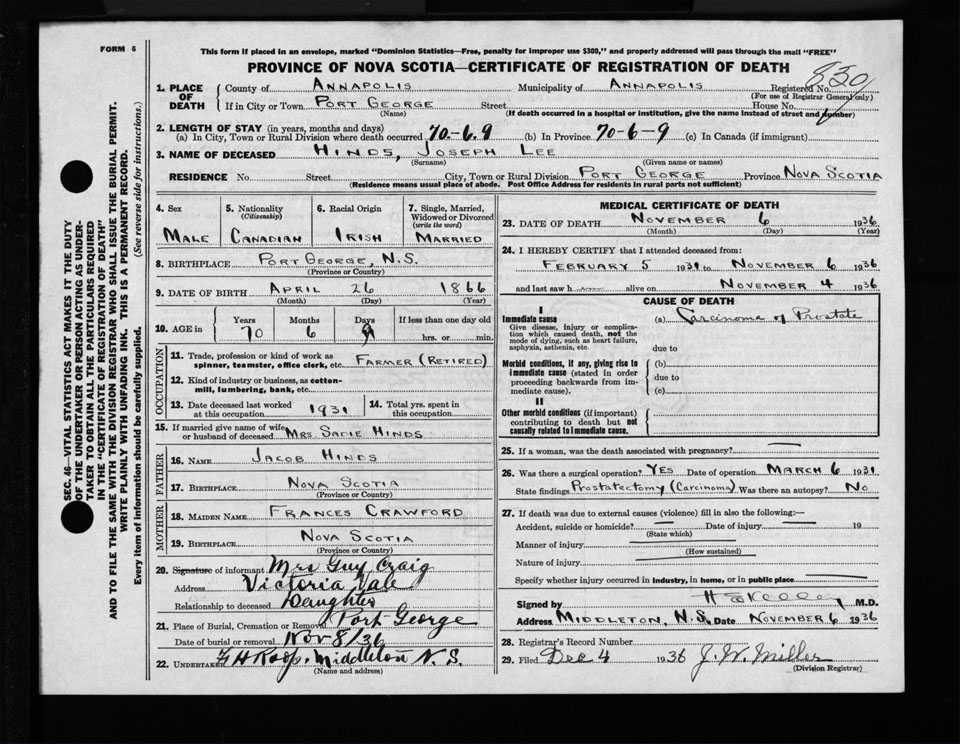 FORM 6
This form if placed in an envelope, marked "Dominion Statistics—Free, penalty for improper use $300," and properly addressed will pass through the mail "FREE"
PROVINCE OF NOVA SCOTIA—CERTIFICATE OF REGISTRATION OF DEATH
830
1. PLACE OF DEATH County of ANNAPOLIS Municipality of ANNAPOLIS Registered No.
(For use of Registrar General only)
If in City or Town PORT GEORGE Street House No.
(Name) (If death occurred in a hospital or institution, give the name instead of street and number)
2. LENGTH OF STAY (in years, months and days)
(a) In City, Town or Rural Division where death occurred 70-6.9 (b) In Province 70-6-9 (c) In Canada (if immigrant)
3. NAME OF DECEASED HINDS, JOSEPH LEE
(Surname) (Given name or names)
RESIDENCE No. Street City, Town or Rural Division PORT GEORGE Province NOVA SCOTIA
(Residence means usual place of abode. Post Office Address for residents in rural parts not sufficient)
4. Sex 5. Nationality (Citizenship) 6. Racial Origin 7. Single, Married, Widowed or Divorced (write the word)
MALE CANADIAN IRISH MARRIED
8. BIRTHPLACE PORT GEORGE, N.S.
(Province or Country)
9. DATE OF BIRTH APRIL 26 1866
(Month) (Day) (Year)
10. AGE in Years Months Days If less than one day old
70 6 9 hrs. or min.
OCCUPATION
11. Trade, profession or kind of work as spinner, teamster, office clerk, etc. FARMER (RETIRED)
12. Kind of industry or business, as cotton-mill, lumbering, bank, etc.
13. Date deceased last worked at this occupation 1931 14. Total yrs. spent in this occupation
15. If married give name of wife or husband of deceased MRS SADIE HINDS
FATHER
16. NAME JACOB HINDS
17. BIRTHPLACE NOVA SCOTIA
(Province or Country)
MOTHER
18. MAIDEN NAME FRANCES CRAWFORD
19. BIRTHPLACE NOVA SCOTIA
(Province or Country)
20. Signature of informant Mrs Guy Craig
Address Victoria Vale
Relationship to deceased Daughter
21. Place of Burial, Cremation or Removal Port George
Date of burial or removal Nov 8/36
22. UNDERTAKER Roop. Middleton N.S.
(Name and address)
MEDICAL CERTIFICATE OF DEATH
23. DATE OF DEATH NOVEMBER 6 1936
(Month) (Day) (Year)
24. I HEREBY CERTIFY that I attended deceased from:
FEBRUARY 5 1931 to NOVEMBER 6 1936
and last saw h alive on NOVEMBER 4 1936
CAUSE OF DEATH
I
Immediate cause (a) Carcinoma of Prostate
Give disease, injury or complication which caused death, not the mode of dying, such as heart failure, asphyxia, asthenia, etc.
due to
Morbid conditions, if any, giving rise to immediate cause (stated in order proceeding backwards from immediate cause).
(b)
due to
(c)
II
Other morbid conditions (if important) contributing to death but not causally related to immediate cause.
25. If a woman, was the death associated with pregnancy?
26. Was there a surgical operation? YES Date of operation MARCH 6 1931
State findings Prostatectomy (Carcinoma) Was there an autopsy? No
27. If death was due to external causes (violence) fill in also the following:—
Accident, suicide or homicide? Date of injury 19
(State which)
Manner of injury
(How sustained)
Nature of injury
Specify whether injury occurred in industry, in home, or in public place
Signed by M.D.
Address MIDDLETON, N.S. Date NOVEMBER 6 1936
28. Registrar's Record Number
29. Filed Dec 4 1936 J. W. Miller
(Division Registrar)
SEC. 46—VITAL STATISTICS ACT MAKES IT THE DUTY
OF THE UNDERTAKER OR PERSON ACTING AS UNDER-
TAKER TO OBTAIN ALL THE PARTICULARS REQUIRED
IN THE "CERTIFICATE OF REGISTRATION OF DEATH"
AND TO FILE THE SAME WITH THE DIVISION REGISTRAR WHO SHALL ISSUE THE BURIAL PERMIT.
WRITE PLAINLY WITH UNFADING INK. THIS IS A PERMANENT RECORD.
Every item of information should be carefully supplied. (See reverse side for instructions.)